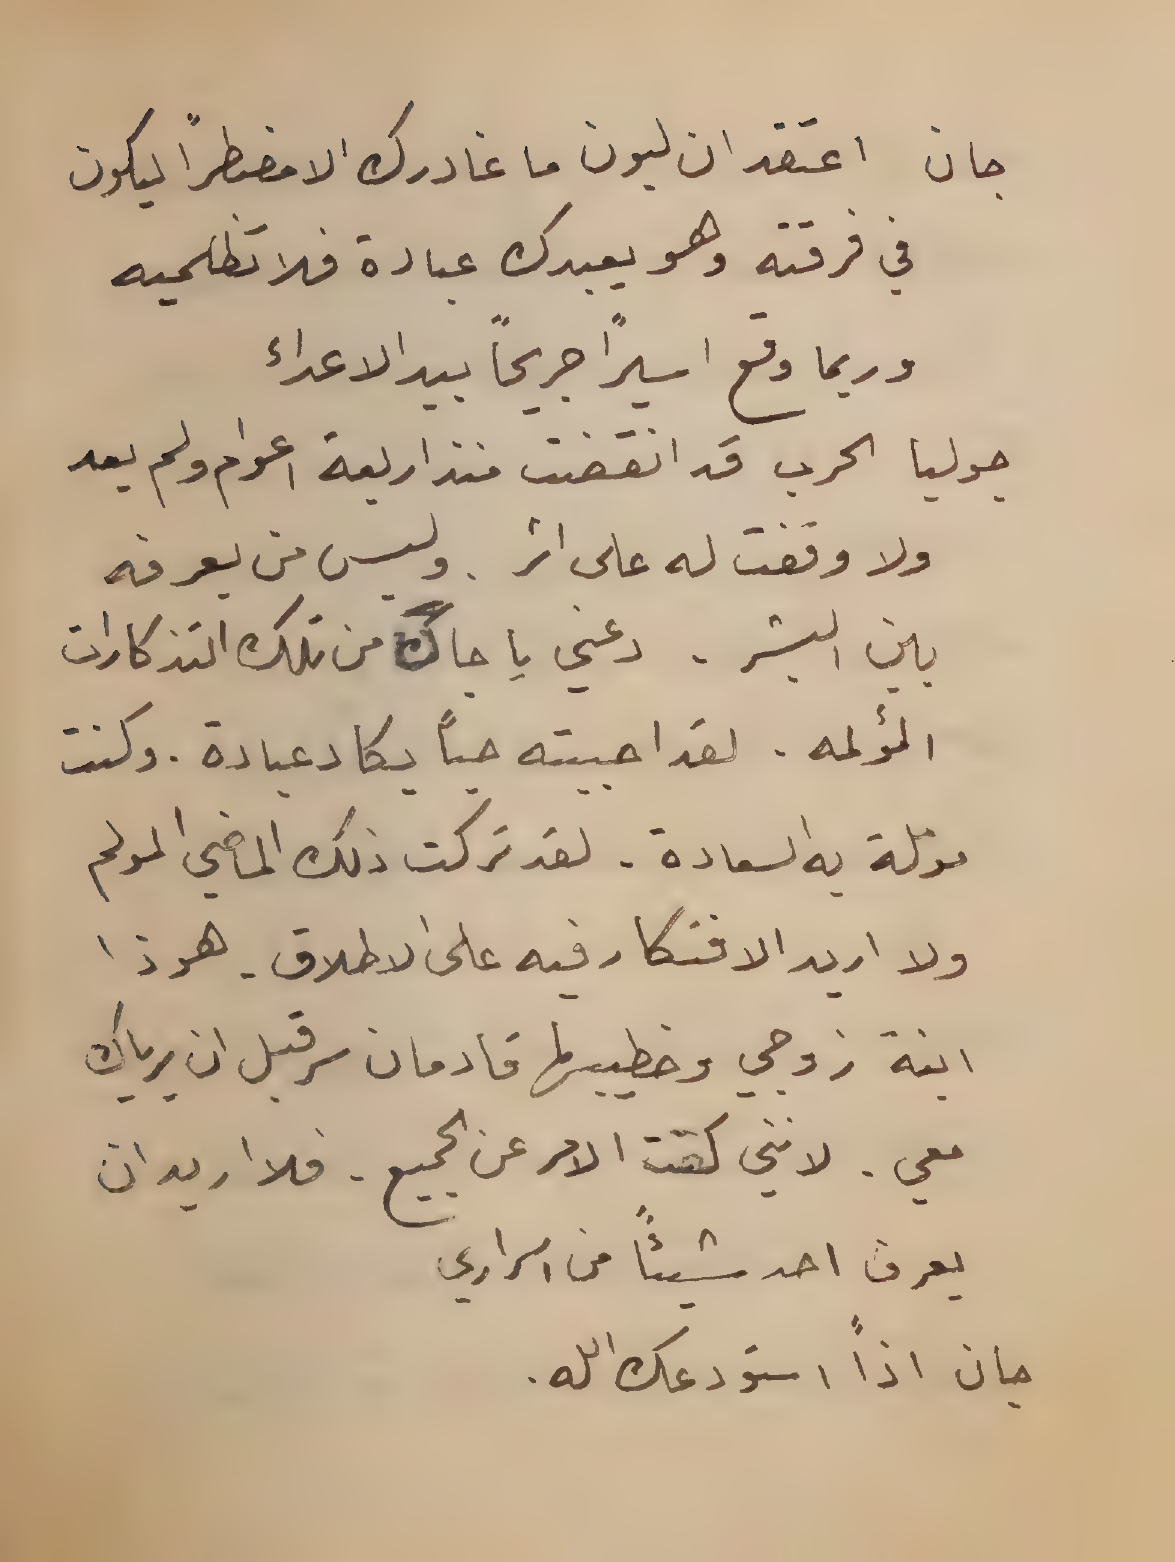 جان اعتقد ان ليون ما غادرك الا مضطراً ليكون
في فرقته وهو يعبدك عبادة فلا تظلميه
وربما وقع اسيراً جريحاً بيد الاعداء
جوليا الحرب قد انقضت منذ اربعة اعوام ولم يعد
ولا وقفت له على اثر . وليس من يعرفه
بين البشر . دعني يا جاك من تلك التذكارات
المؤلمه . لقد احببته حباً يكاد عبادة . وكنت
مؤملة به السعادة . لقد تركت ذلك الماضي المولم
ولا اريد الافتكار فيه على الاطلاق . هوذا
ابنة زوجي وخطيبها قادمان سر قبل ان يرياك
معي . لانني كتمت الامر عن الجميع . فلا اريد ان
يعرف احد شيئاً من اسراري
جان اذاً استودعك الله .